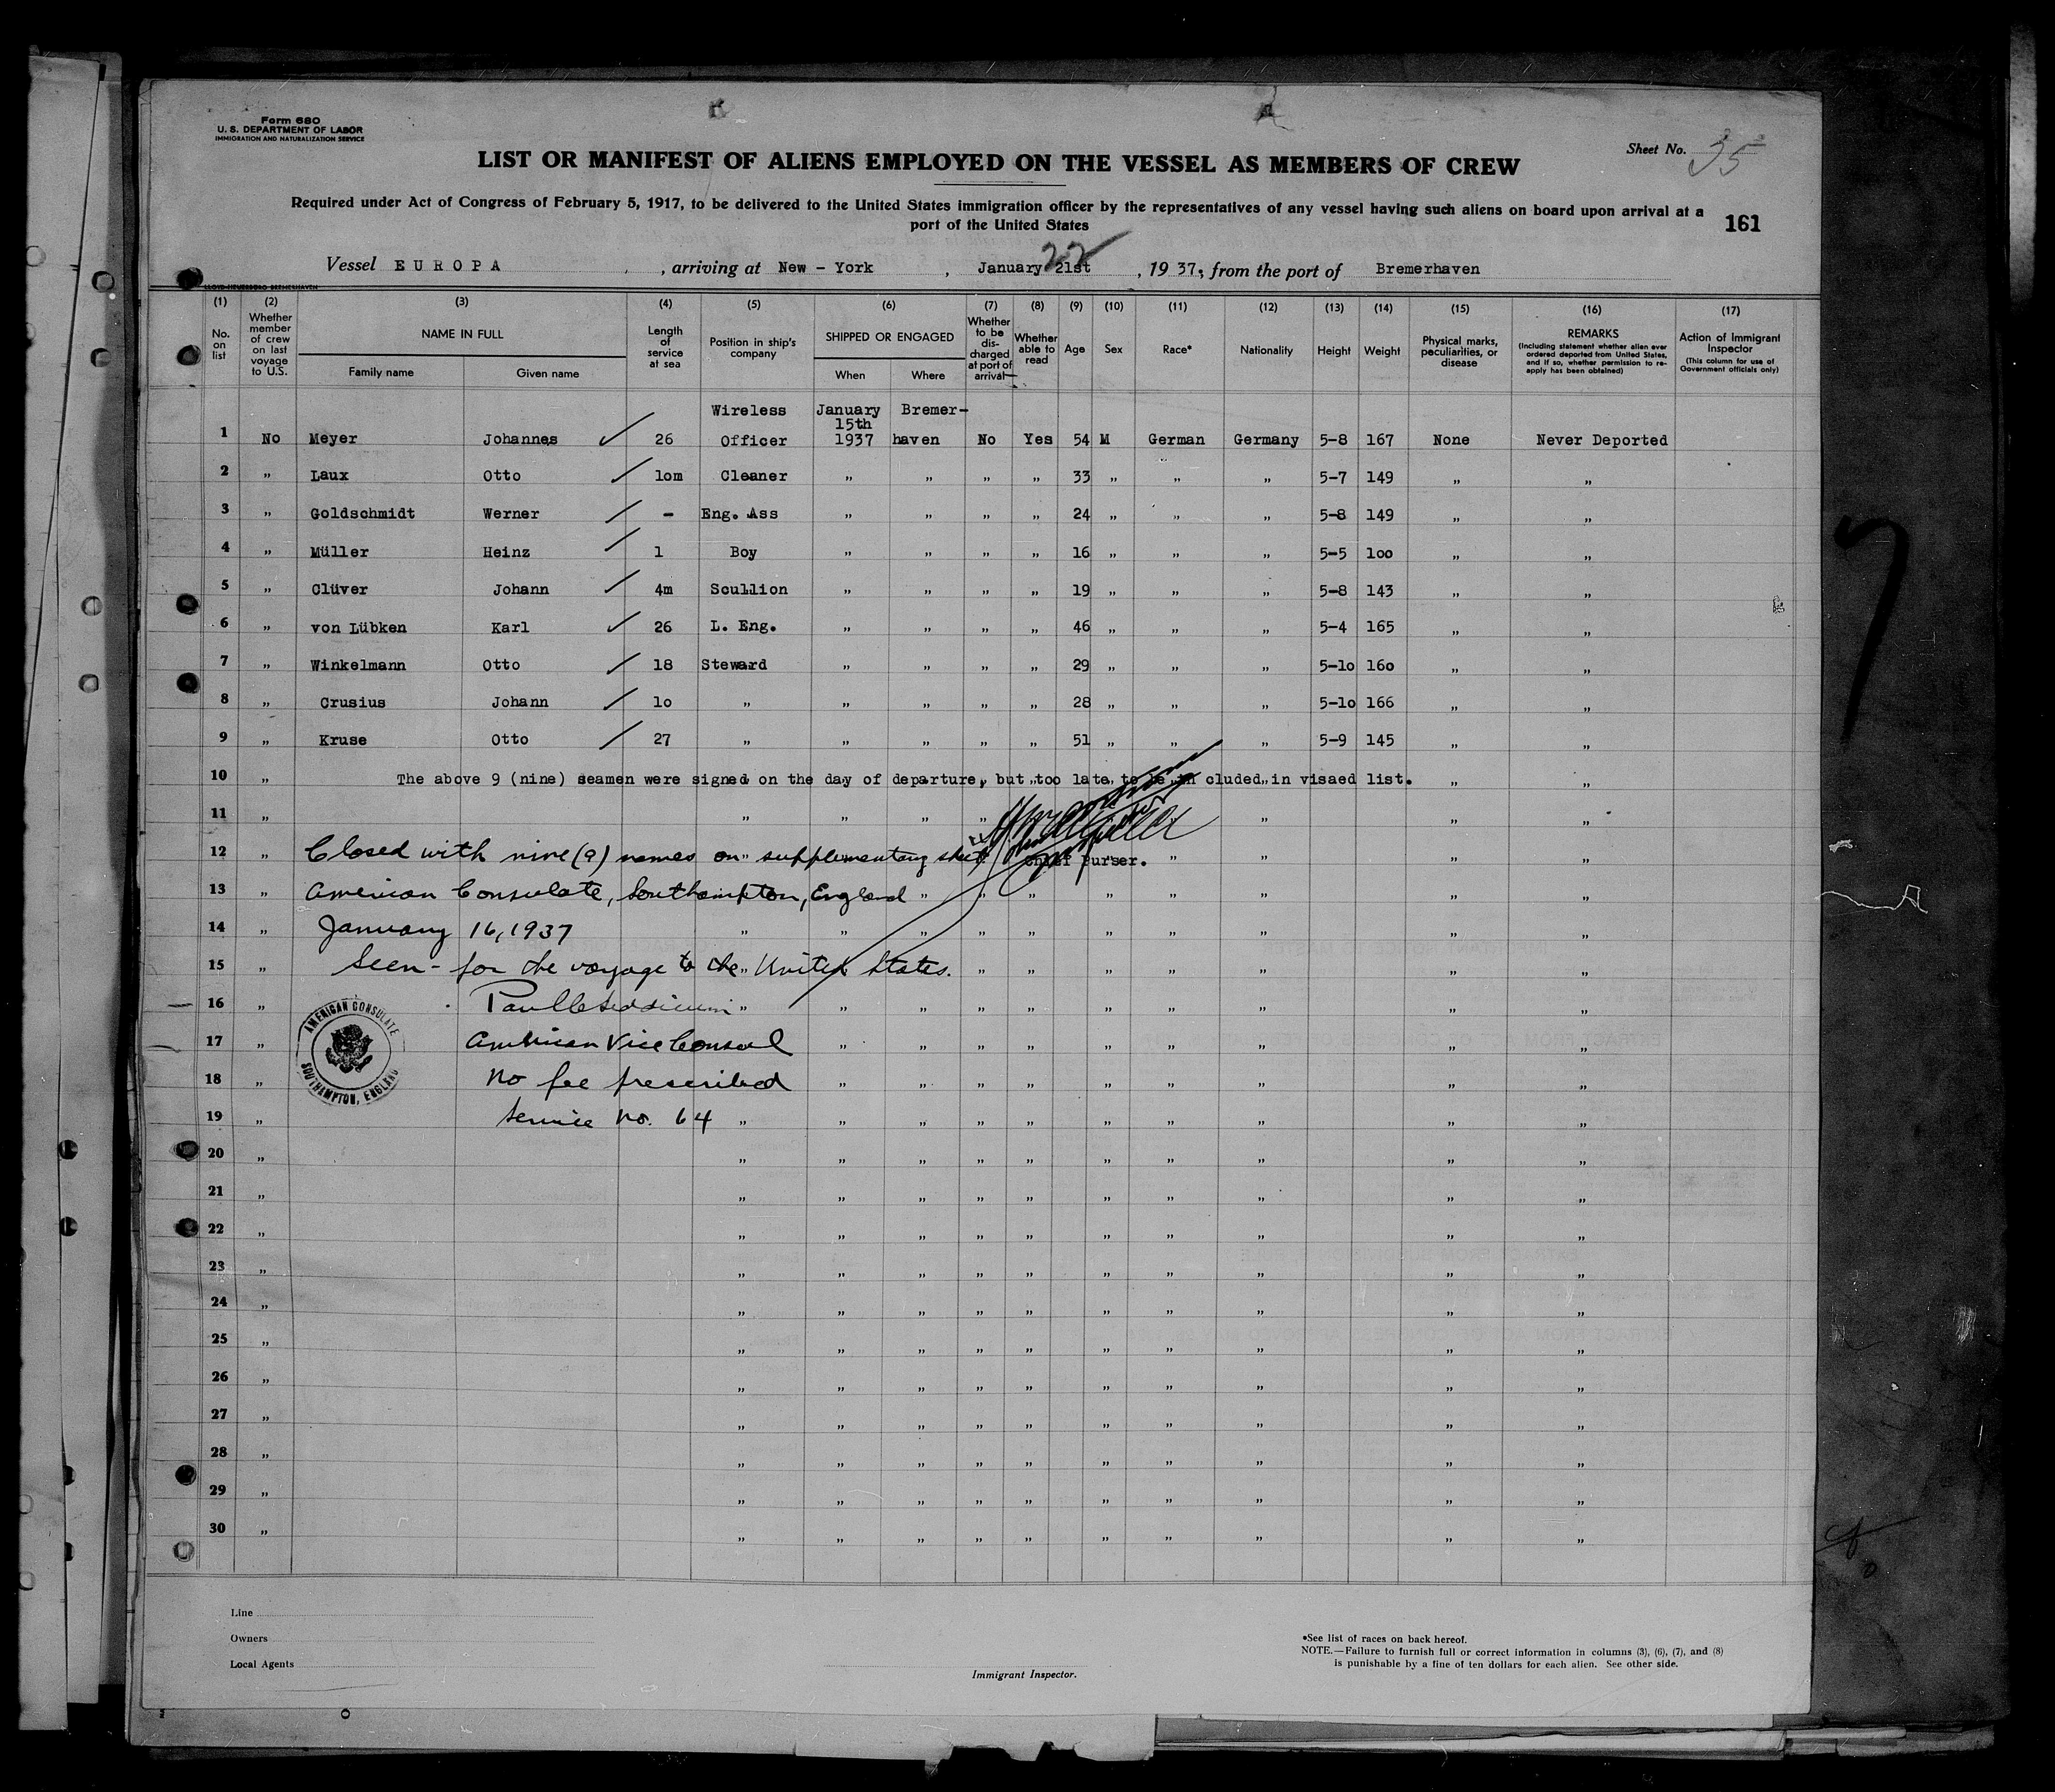 Form 680
U. S. DEPARTMENT OF LABOR
IMMIGRATION AND NATURALIZATION SERVICE
Sheet No. 35
LIST OR MANIFEST OF ALIENS EMPLOYED ON THE VESSEL AS MEMBERS OF CREW
Required under Act of Congress of February 5, 1917, to be delivered to the United States immigration officer by the representatives of any vessel having such aliens on board upon arrival at a
port of the United States
161
22
Vessel EUROPA , arriving at New - York , January 21st , 19 37, from the port of Bremerhaven
(1) (2) (3) (4) (5) (6) (7) (8) (9) (10) (11) (12) (13) (14) (15) (16) (17)
No. on list
Whether member of crew on last voyage to U.S.
NAME IN FULL
Family name
Given name
Length of service at sea
Position in ship's company
SHIPPED OR ENGAGED
When
Where
Whether to be discharged at port of arrival
Whether able to read
Age
Sex
Race*
Nationality
Height
Weight
Physical marks, peculiarities, or disease
REMARKS
(Including statement whether alien ever ordered deported from United States, and if so, whether permission to re-apply has been obtained)
Action of Immigrant Inspector
(This column for use of Government officials only)
Wireless January Bremer-
15th
1 No Meyer Johannes 26 Officer 1937 haven No Yes 54 M German Germany 5-8 167 None Never Deported
2 „ Laux Otto 10m Cleaner „ „ „ „ 33 „ „ „ 5-7 149 „ „
3 „ Goldschmidt Werner - Eng. Ass „ „ „ „ 24 „ „ „ 5-8 149 „ „
4 „ Müller Heinz 1 Boy „ „ „ „ 16 „ „ „ 5-5 100 „ „
5 „ Clüver Johann 4m Scullion „ „ „ „ 19 „ „ „ 5-8 143 „ „
6 „ von Lübken Karl 26 L. Eng. „ „ „ „ 46 „ „ „ 5-4 165 „ „
7 „ Winkelmann Otto 18 Steward „ „ „ „ 29 „ „ „ 5-10 160 „ „
8 „ Crusius Johann 10 „ „ „ „ „ 28 „ „ „ 5-10 166 „ „
9 „ Kruse Otto 27 „ „ „ „ „ 51 „ „ „ 5-9 145 „ „
10 „ The above 9 (nine) seamen were signed on the day of departure, but too late to be in cluded in visaed list. „ „
11 „ „ „ „ „ „ „ „
12 „ Closed with nine (9) names on supplementary sheet Chief Purser. „ „ „ „
13 „ American Consulate, Southampton, England „ „ „ „ „ „ „ „
14 „ January 16, 1937 „ „ „ „ „ „ „ „ „ „
15 „ Seen - for the voyage to the United States. „ „ „ „ „ „ „
16 „ „ „ „ „ „ „ „ „ „ „
AMERICAN CONSULATE
SOUTHAMPTON, ENGLAND
17 „ American Vice Consul „ „ „ „ „ „ „ „ „
18 „ No fee prescribed „ „ „ „ „ „ „ „ „
19 „ Service No. 64 „ „ „ „ „ „ „ „ „ „
20 „ „ „ „ „ „ „ „ „ „ „
21 „ „ „ „ „ „ „ „ „ „ „
22 „ „ „ „ „ „ „ „ „ „ „
23 „ „ „ „ „ „ „ „ „ „ „
24 „ „ „ „ „ „ „ „ „ „ „
25 „ „ „ „ „ „ „ „ „ „ „
26 „ „ „ „ „ „ „ „ „ „ „
27 „ „ „ „ „ „ „ „ „ „ „
28 „ „ „ „ „ „ „ „ „ „ „
29 „ „ „ „ „ „ „ „ „ „ „
30 „ „ „ „ „ „ „ „ „ „ „
Line
Owners
Local Agents
Immigrant Inspector.
*See list of races on back hereof.
NOTE.—Failure to furnish full or correct information in columns (3), (6), (7), and (8)
is punishable by a fine of ten dollars for each alien. See other side.